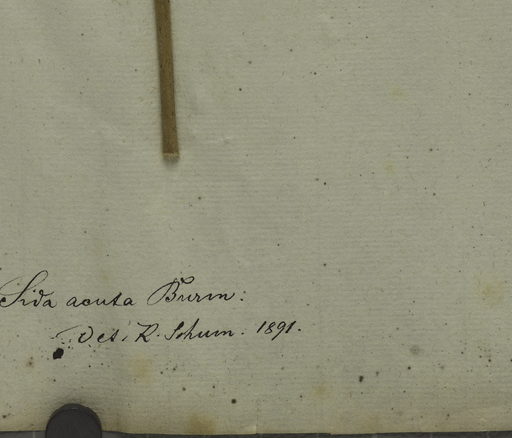 Sida acuta Burm:
Det. K. Schum. 1891.